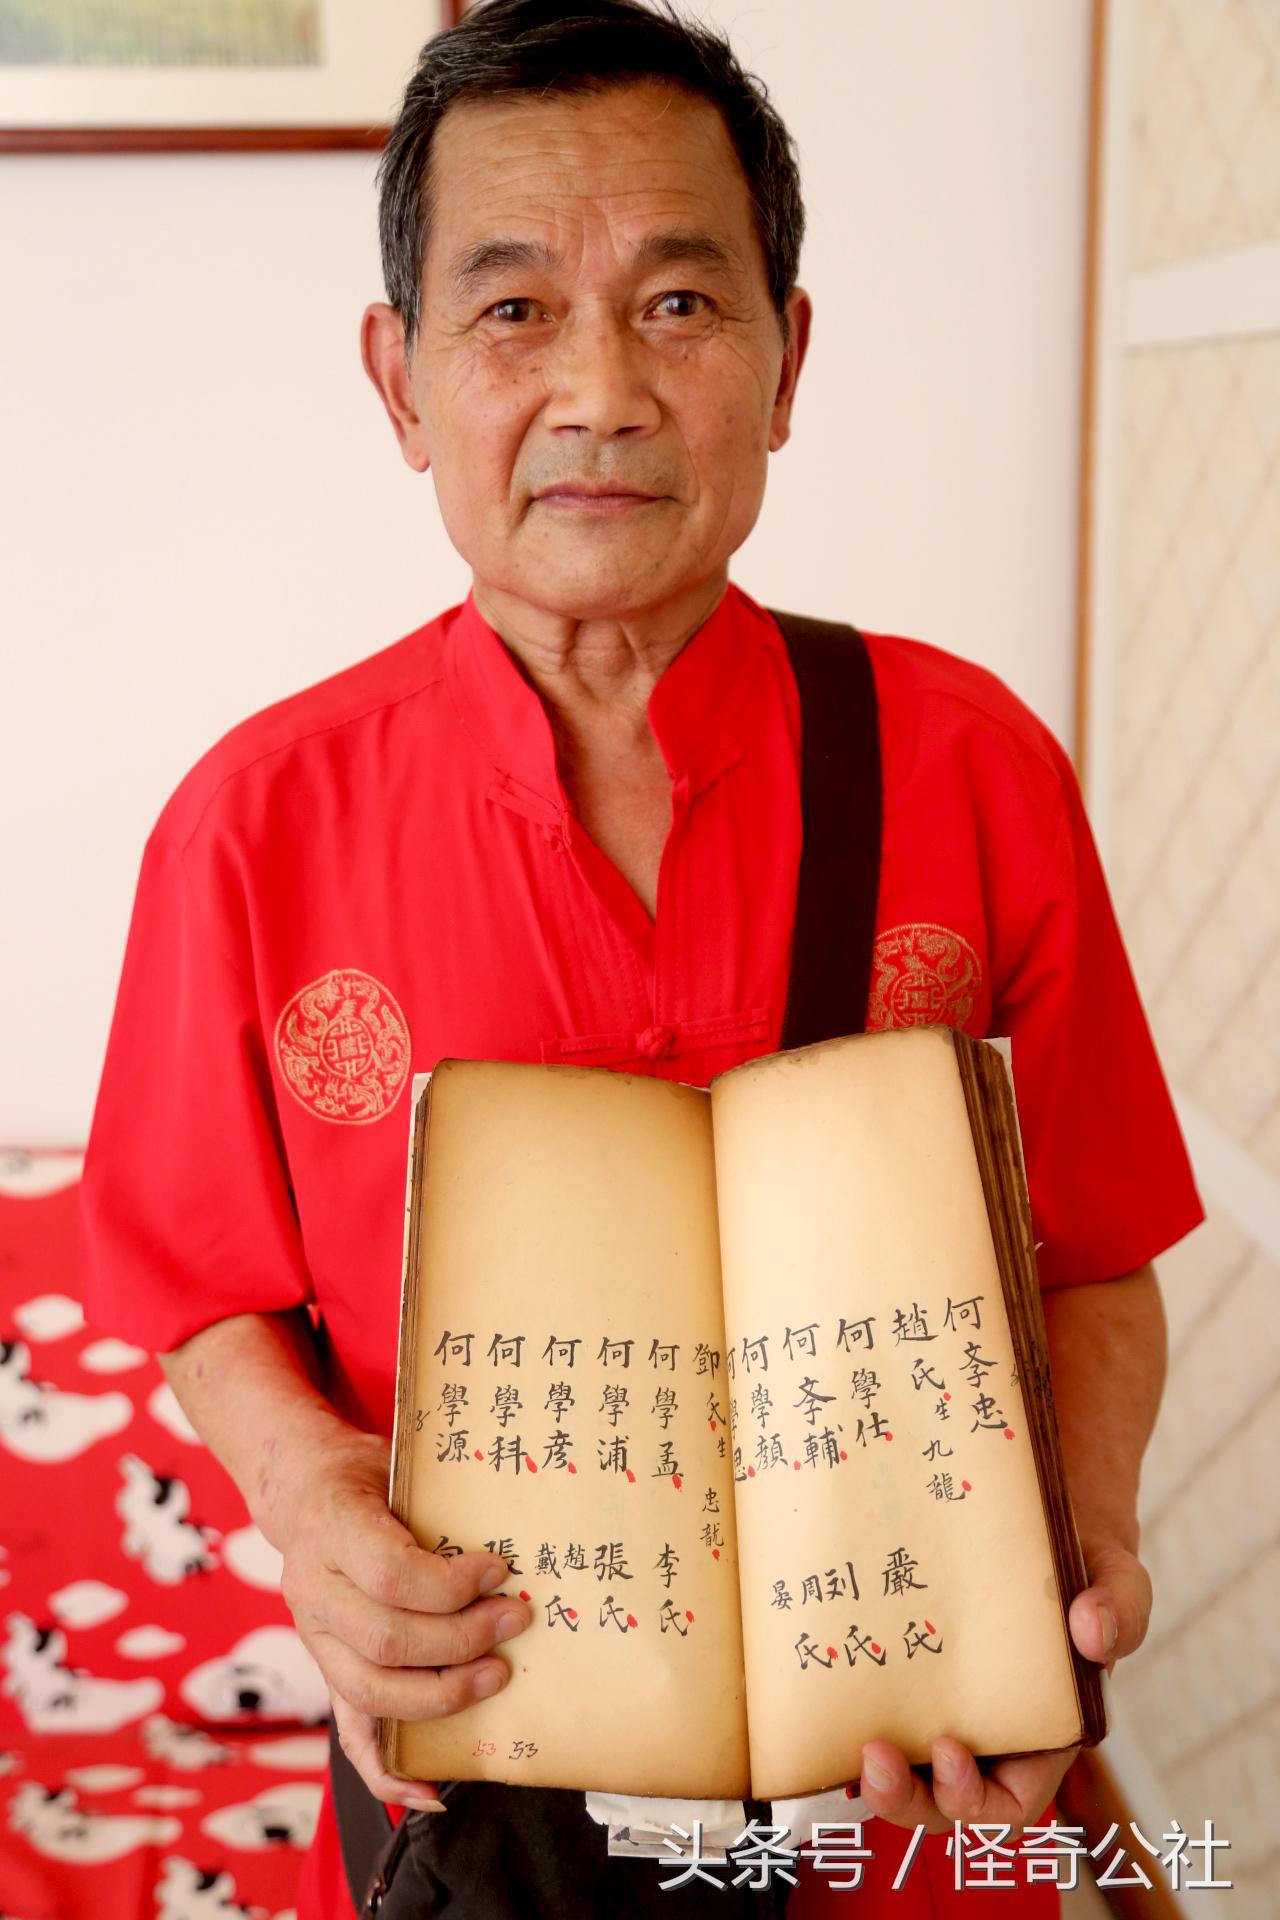 何孝忠
趙氏生九龍
何學仕
嚴氏
何孝輔
刘氏
何學顏
周
晏氏
何學思
鄧氏生忠龍
何學孟
李氏
何學浦
張氏
何學彦
趙
戴氏
何學科
張
何學源
53 53
头条号 / 怪奇公社